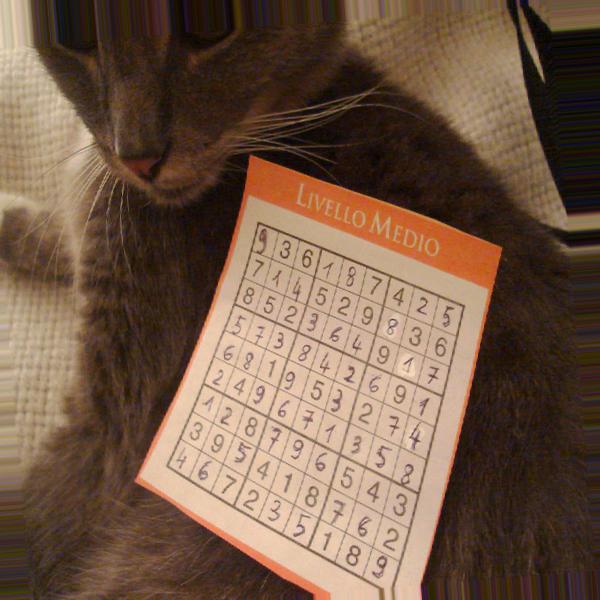 LIVELLO MEDIO
9 3 6 1 8 7 4 2 5
7 1 4 5 2 9 8 3 6
8 5 2 3 6 4 9 1 7
5 7 3 8 4 2 6 9 1
6 8 1 9 5 3 2 7 4
2 4 9 6 7 1 3 5 8
1 2 8 7 9 6 5 4 3
3 9 5 4 1 8 7 6 2
4 6 7 2 3 5 1 8 9